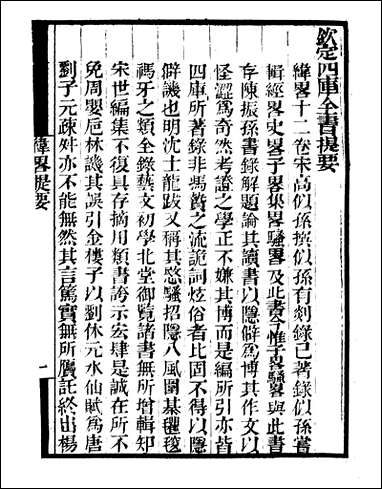 欽定四庫全書提要
緯畧十二卷宋高似孫撰似孫有剡錄已著錄似孫嘗
輯經畧史畧子畧集畧騷畧及此書今惟子畧騷畧與此書
存陳振孫書錄解題論其讀書以隱僻為博其作文以
怪澀為奇然考證之學正不嫌其博而是編所引亦皆
四庫所著錄非馮贄之流詭詞炫俗者比固不得以隱
僻譏也明沈士龍跋又稱其愍騷招隱八風圍棊瓊筏
禡牙之類全錄藝文初學北堂御覽諸書無所增輯知
宋世編集不復具存摘用類書誇示宏肆是誠在所不
免周嬰卮林譏其誤引金樓子以劉休元水仙賦為唐
劉子元疎舛亦不能無然其言篤實無所贗託終出楊
緯畧提要
一